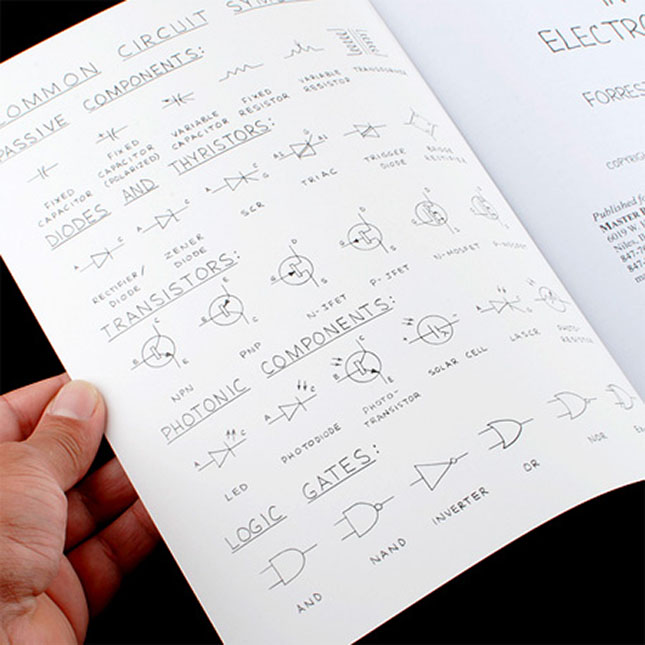 COMMON CIRCUIT SYMB
PASSIVE COMPONENTS:
FIXED CAPACITOR
FIXED CAPACITOR (POLARIZED)
VARIABLE CAPACITOR
FIXED RESISTOR
VARIABLE RESISTOR
TRANSFORMER
DIODES AND THYRISTORS:
A C
A C
A C G
A1 G A2
RECTIFIER/ DIODE
ZENER DIODE
SCR
TRIAC
TRIGGER DIODE
BRIDGE RECTIFIER
TRANSISTORS:
B C E
B E C
G D S
G D S
G D S
G D S
NPN
PNP
N-JFET
P-JFET
N-MOSFET
P-MOSFET
PHOTONIC COMPONENTS:
A C
A C
B C E
+ -
A C G
LED
PHOTODIODE
PHOTO-TRANSISTOR
SOLAR CELL
LASCR
PHOTO-RESISTOR
LOGIC GATES:
AND
NAND
INVERTER
OR
NOR
ELECTRO
FORREST
COPYRIG
Published fo
MASTER P
6019 W. H
Niles, I
847-7
847-
m